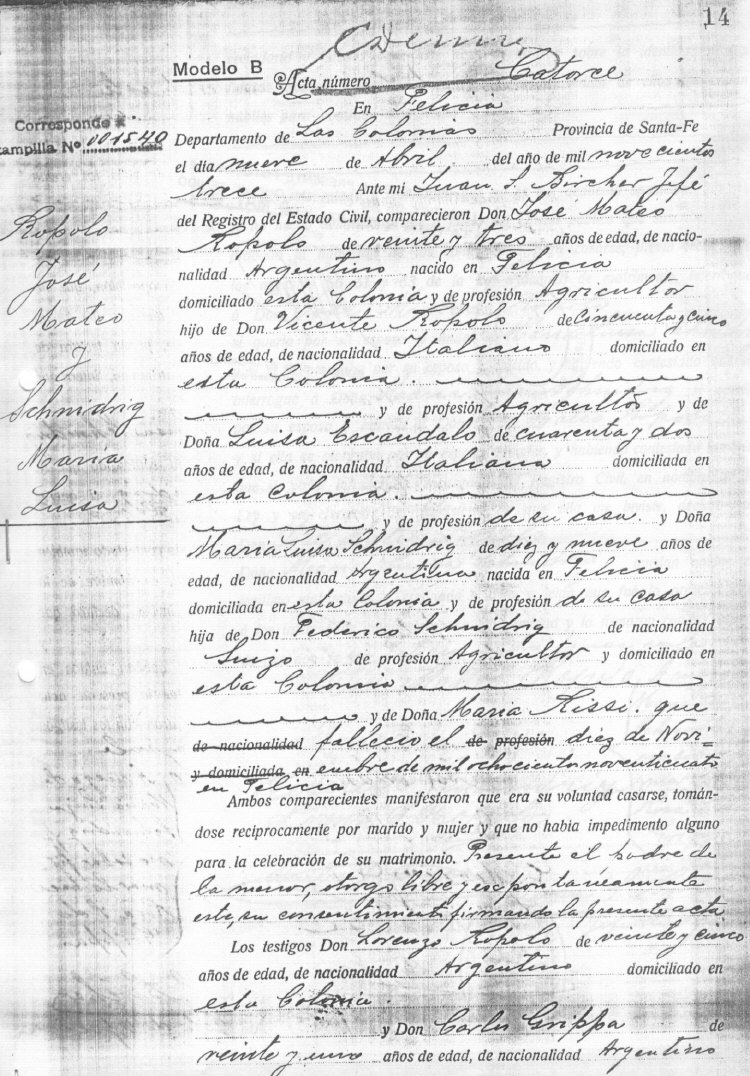 14
Modelo B
Acta número Catorce
En Felicia
Corresponde a
Departamento de Las Colonias Provincia de Santa-Fe
tampilla Nº 001540
el día nueve de Abril del año de mil novecientos
trece Ante mi Juan S. Bircher Jefé
Ropolo
José
Mateo
y
Schnidrig
Maria
Luisa
del Registro del Estado Civil, comparecieron Don José Mateo
Ropolo de veinte y tres años de edad, de nacio-
nalidad Argentino nacido en Felicia
domiciliado esta Colonia y de profesión Agricultor
hijo de Don Vicente Ropolo de Cincuenta y cinco
años de edad, de nacionalidad Italiano domiciliado en
esta Colonia.
y de profesión Agricultor y de
Doña Luisa Escandalo de cuarenta y dos
años de edad, de nacionalidad Italiana domiciliada en
esta Colonia.
y de profesión de su casa. y Doña
Maria Luisa Schnidrig de diez y nueve años de
edad, de nacionalidad Argentina nacida en Felicia
domiciliada en esta Colonia y de profesión de su casa
hija de Don Federico Schnidrig de nacionalidad
Suizo de profesión Agricultor y domiciliado en
esta Colonia
y de Doña Maria Rissi. que
de nacionalidad fallecio el de profesión diez de Novi=
y domiciliada en embre de mil ochocientos noventicuatro
en Felicia
Ambos comparecientes manifestaron que era su voluntad casarse, tomán-
dose reciprocamente por marido y mujer y que no habia impedimento alguno
para la celebración de su matrimonio. Presente el padre de
la menor, otorgo libre y espontaneamente
este, su consentimiento firmando la presente acta
Los testigos Don Lorenzo Ropolo de veinte y cinco
años de edad, de nacionalidad Argentino domiciliado en
esta Colonia.
y Don Carlos Grippa de
veinte y uno años de edad, de nacionalidad Argentino